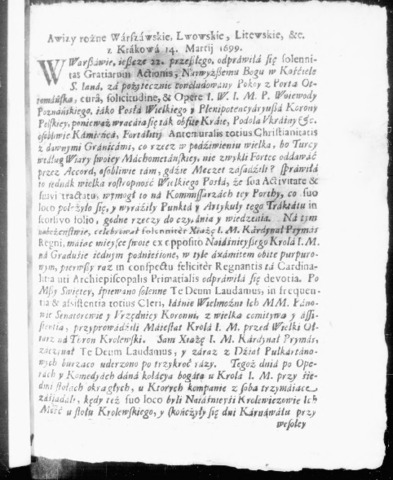 Awizy rożne Wárszáwskie, Lwowskie, Litewskie, &c.
z Krákowá 14. Martij 1699.
W Warszáwie, ieszcze 22. przeszłego, odpráwiłá się solenni-
tas Gratiarum Actionis, Naywyższemu Bogu w Kościele
S. Ianá, zá pożyteczny concludowány Pokoy z Portą Oto-
mańską, curâ, solicitudine, & Operâ I. W. I. M. P. Woiewody
Poznáńskiego, iáko Posłá Wielkiego y Plenipotencyáryusá Korony
Polskiey, ponieważ wrocáią się ták obfite Kráie, Podolá Vkráiny &c.
osobliwie Kámieńcá, Portálitij Antemuralis totius Christianitatis
z dawnymi Gránicámi, co rzecz w podźiwieniu wielka, bo Turcy
według Wiáry swoiey Máchometáńskiey, nie zwykli Fortec oddáwáć
przez Accord, osobliwie tám, gdźie Meczet zásádźili? spráwiłá
to iednák wielka rostropność Wielkiego Posłá, że suâ Activitate &
suavi tractatu, wymogł to ná Kommissarzách tey Porthy, co suo
loco położyło się, y wyráźiły Punktá y Artykuły tego Tráktátu in
scorsivo folio, godne rzeczy do czytánia y wiedzenia. Ná tym
nabożeństwie, celebrował solenniter Xiążę I. M. Kárdynał Prymas
Regni, máiąc mieysce swoie ex opposito Naiáśnieyszego Krolá I. M.
ná Gradusie iednym podnieśione, w tyle áxámitem obite purpuro-
wym, pierwszy raz in conspectu feliciter Regnantis tá Cardina-
litia uti Archiepiscopalis Primatialis odpráwiłá się devotia. Po
Mszy Swiętey, śpiewano solenne Te Deum Laudamus, in frequen-
tia & assistentia totius Cleri, ktore Wielmożni Ich MM. Páno-
wie Senatorowie y Vrzędnicy Koronni, z wielką comitywą y ássi-
stentią, przyprowádźili Máiestat Krolá I. M. przed Wielki Oł-
tarz ná Toron Krolewski. Sam Xiążę I. M. Kárdynał Prymás,
záczynał Te Deum Laudamus, y záraz z Dźiał Pułkartáno-
wych burząco uderzono po trzykroć rázy. Tegoż dniá po Ope-
rách y Komedyách dáná kolácya bogáta u Krolá I. M. przy śie-
dmi stołách okrągłych, u ktorych kompánie z sobą trzymáiące
záśiádáli, kędy też suo loco byli Naiáśnieyśi Krolewicowie Ich
Mość u stołu Krolewskiego, y skończyły się dni Kárnáwału przy
wesołey